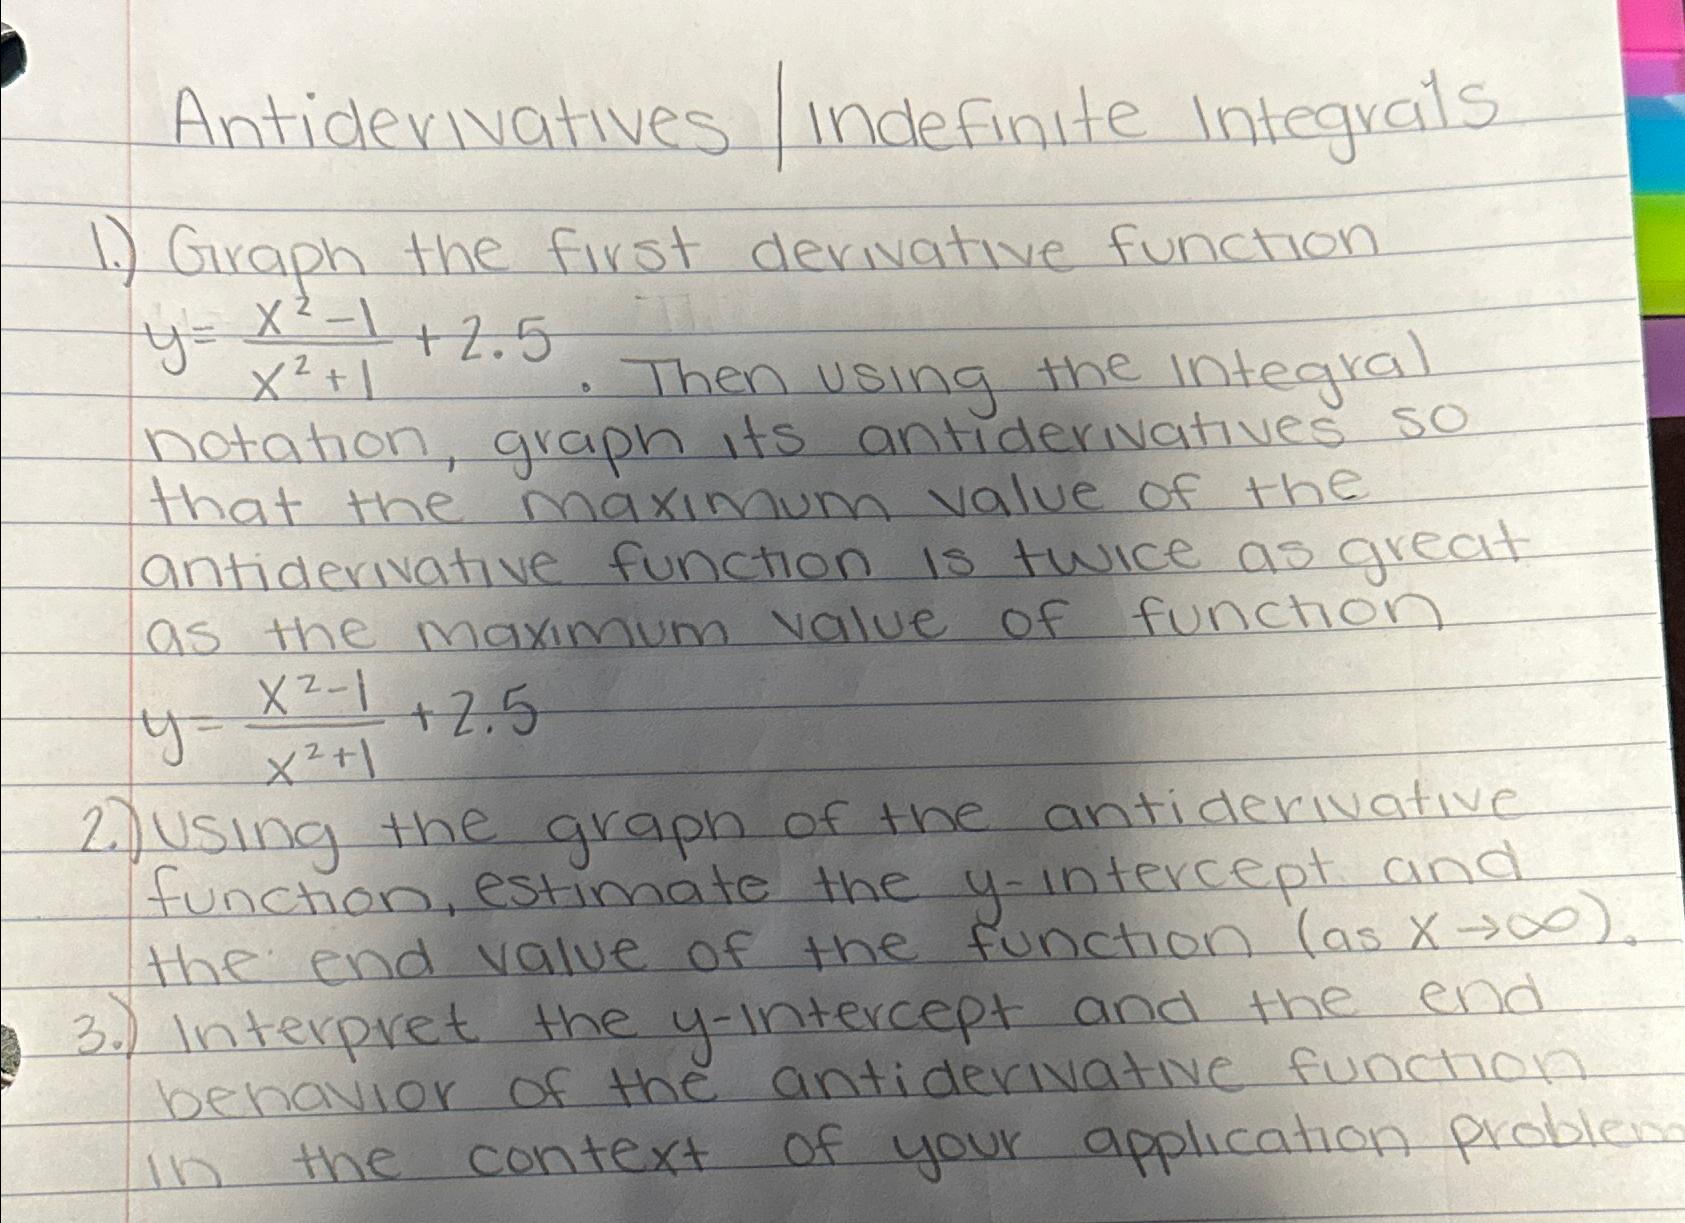 Antiderivatives | indefinite Integrals
1.) Graph the first derivative function
y = \frac{x^2-1}{x^2+1} + 2.5 . Then using the integral
notation, graph its antiderivatives so
that the maximum value of the
antiderivative function is twice as great
as the maximum value of function
y = \frac{x^2-1}{x^2+1} + 2.5
2.) Using the graph of the antiderivative
function, estimate the y-intercept and
the end value of the function (as x → ∞).
3.) Interpret the y-intercept and the end
behavior of the antiderivative function
in the context of your application problem